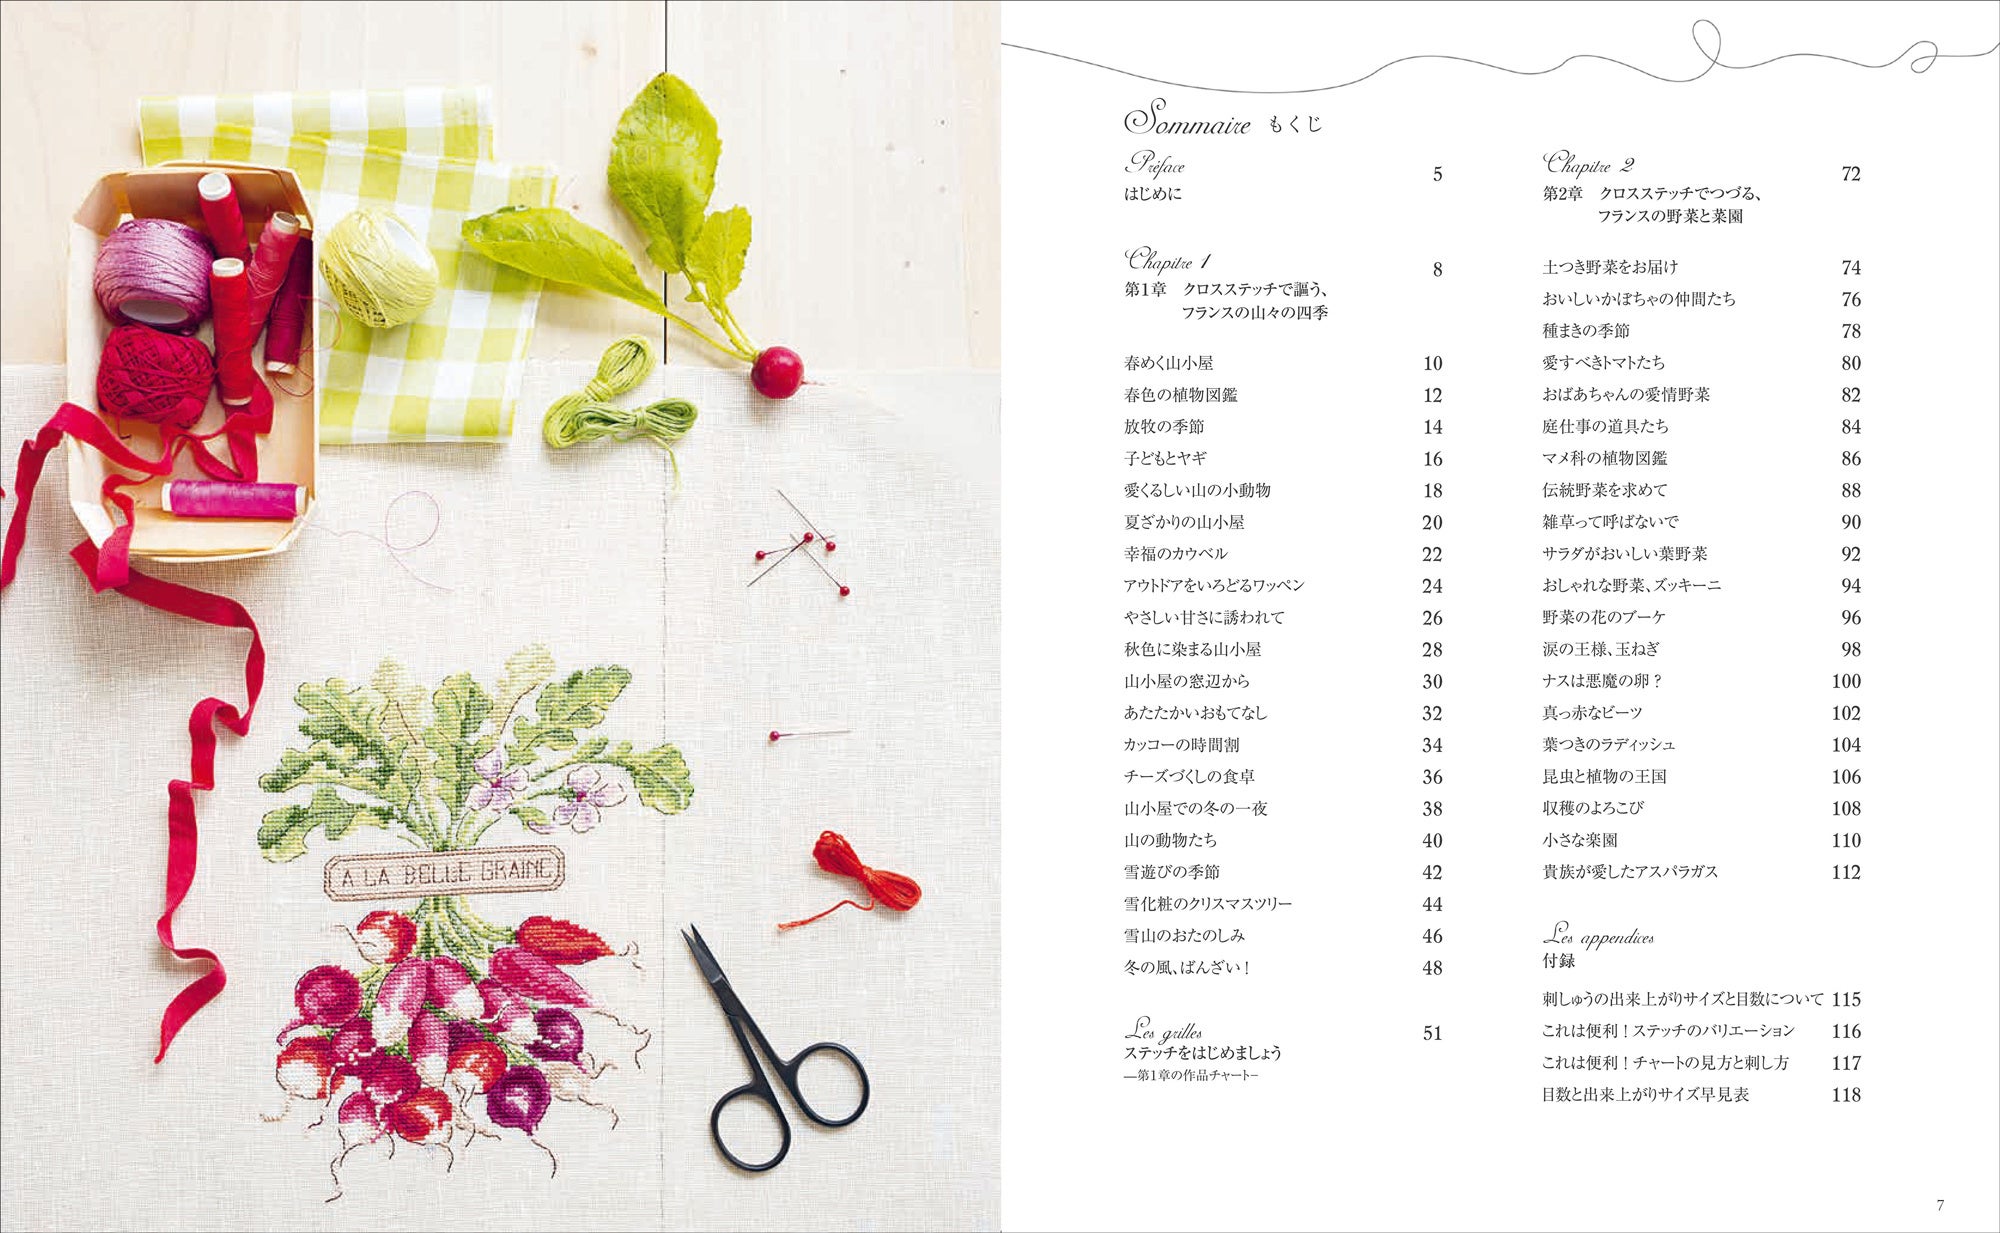 A LA BELLE GRAINE
Sommaire もくじ
Préface 5
はじめに
Chapitre 1 8
第1章 クロスステッチで謳う、
フランスの山々の四季
春めく山小屋 10
春色の植物図鑑 12
放牧の季節 14
子どもとヤギ 16
愛くるしい山の小動物 18
夏ざかりの山小屋 20
幸福のカウベル 22
アウトドアをいろどるワッペン 24
やさしい甘さに誘われて 26
秋色に染まる山小屋 28
山小屋の窓辺から 30
あたたかいおもてなし 32
カッコーの時間割 34
チーズづくしの食卓 36
山小屋での冬の一夜 38
山の動物たち 40
雪遊びの季節 42
雪化粧のクリスマスツリー 44
雪山のおたのしみ 46
冬の風、ばんざい! 48
Les grilles 51
ステッチをはじめましょう
—第1章の作品チャート—
Chapitre 2 72
第2章 クロスステッチでつづる、
フランスの野菜と菜園
土つき野菜をお届け 74
おいしいかぼちゃの仲間たち 76
種まきの季節 78
愛すべきトマトたち 80
おばあちゃんの愛情野菜 82
庭仕事の道具たち 84
マメ科の植物図鑑 86
伝統野菜を求めて 88
雑草って呼ばないで 90
サラダがおいしい葉野菜 92
おしゃれな野菜、ズッキーニ 94
野菜の花のブーケ 96
涙の王様、玉ねぎ 98
ナスは悪魔の卵? 100
真っ赤なビーツ 102
葉つきのラディッシュ 104
昆虫と植物の王国 106
収穫のよろこび 108
小さな楽園 110
貴族が愛したアスパラガス 112
Les appendices
付録
刺しゅうの出来上がりサイズと目数について 115
これは便利!ステッチのバリエーション 116
これは便利!チャートの見方と刺し方 117
目数と出来上がりサイズ早見表 118
7